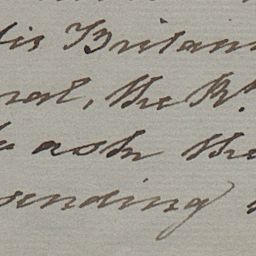 His Britani
nal, the Rt
to ask the
sending